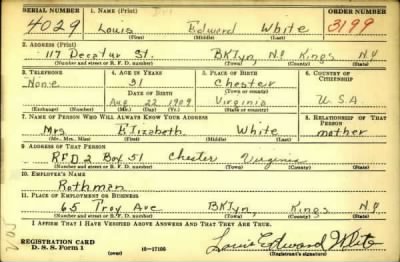 SERIAL NUMBER 1. NAME (Print) ORDER NUMBER
4029 Louis Edward White 3199
(First) (Middle) (Last)
2. ADDRESS (Print)
117 Decatur St. BKlyn, N.Y Kings N.Y
(Number and street or R. F. D. number) (Town) (County) (State)
3. TELEPHONE 4. AGE IN YEARS 5. PLACE OF BIRTH 6. COUNTRY OF CITIZENSHIP
None 31 Chester
DATE OF BIRTH (Town or county)
Aug. 22 1909 Virginia U.S.A
(Exchange) (Number) (Mo.) (Day) (Yr.) (State or country)
7. NAME OF PERSON WHO WILL ALWAYS KNOW YOUR ADDRESS 8. RELATIONSHIP OF THAT PERSON
Mrs. Elizabeth White mother
(Mr., Mrs., Miss) (First) (Middle) (Last)
9. ADDRESS OF THAT PERSON
RFD 2 Box 51 Chester Virginia
(Number and street or R. F. D. number) (Town) (County) (State)
10. EMPLOYER'S NAME
Rothman
11. PLACE OF EMPLOYMENT OR BUSINESS
65 Troy Ave BKlyn, Kings N.Y
(Number and street or R. F. D. number) (Town) (County) (State)
I AFFIRM THAT I HAVE VERIFIED ABOVE ANSWERS AND THAT THEY ARE TRUE.
REGISTRATION CARD
D. S. S. Form 1 (over) 16—17105 Louis Edward White